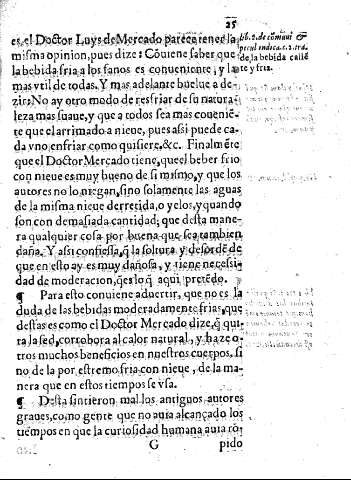 25
es el Doctor Luys de Mercado parece tener la
misma opinion, pues dize: Cõuiene saber que
la bebida fria a los sanos es conueniente, y la
mas vtil de todas. Y mas adelante buelue a de-
zir: No ay otro modo de resfriar de su natura-
leza mas suaue, y que a todos sea mas couenië-
te que el arrimado a nieue, pues assi puede ca-
da vno enfriar como quisiere, &c. Finalmẽte
que el Doctor Mercado tiene, que el beber frio
con nieue es muy bueno de si mismo, y que los
autores no lo niegan, sino solamente las aguas
de la misma nieue derretida, o yelos, y quando
son con demasiada cantidad; que desta mane-
ra qualquier cosa por buena que sea tambien
daña. Y assi confiessa, q̃ la soltura y desordẽ de
que en esto ay es muy dañosa, y tiene necessi-
dad de moderacion, q̃ es lo q̃ aqui pretẽdo.
¶ Para esto conuiene aduertir, que no es la
duda de las bebidas moderadamente frias, que
destas es como el Doctor Mercado dize, q̃ qui-
ta la sed, corrobora al calor natural, y haze o-
tros muchos beneficios en nuestros cuerpos, si
no de la por estremo fria con nieue, de la ma-
nera que en estos tiempos se vsa.
¶ Desta sintieron mal los antiguos autores
graues, como gente que no auia alcançado los
tiempos en que la curiosidad humana auia rõ-
G pido
lib. 2. de cõmuni &
pecul. indica. c. 2. tra.
de la bebida caliẽ
te y fria.